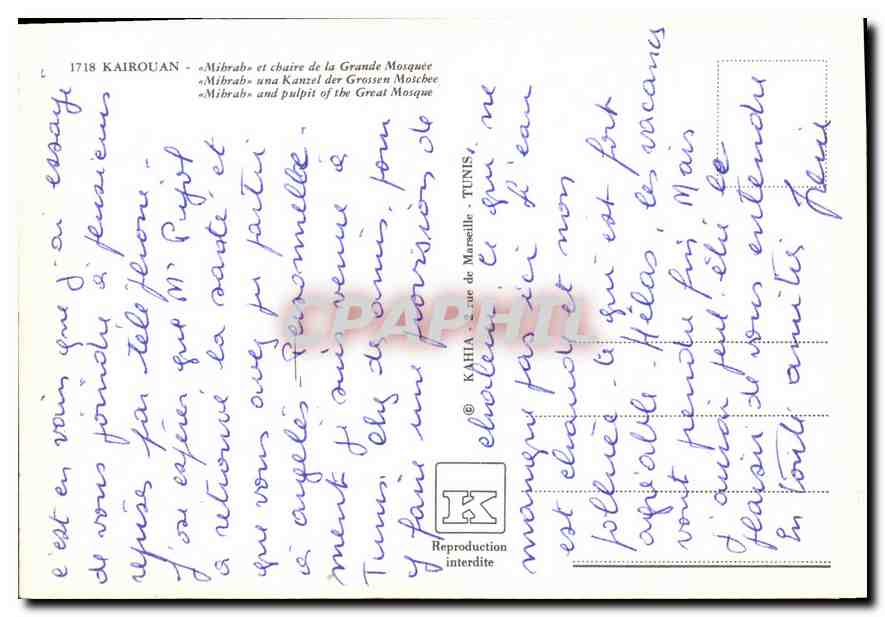 1718 KAIROUAN - «Mihrab» et chaire de la Grande Mosquée
«Mihrab» una Kanzel der Grossen Motchee
«Mihrab» and pulpit of the Great Mosque
c'est en vain que j'ai essayé
de vous joindre à plusieurs
reprises par téléphone -
J'ose espérer que Mr Pujol
a retrouvé la santé et
que vous avez pu partir
à argelès - Personnelle-
ment je suis venue à
Tunis, chez des amis, pour
y faire une provision de
chaleur, ce qui ne
manque pas ici. L'eau
est chaude et non
polluée - ce qui est fort
agréable - Hélas, les vacances
vont prendre fin. Mais
j'aurai peut-être le
plaisir de vous entendre
En toute amitié
© KAHIA - 2 rue de Marseille - TUNIS
K
Reproduction
interdite
CPAPHIL